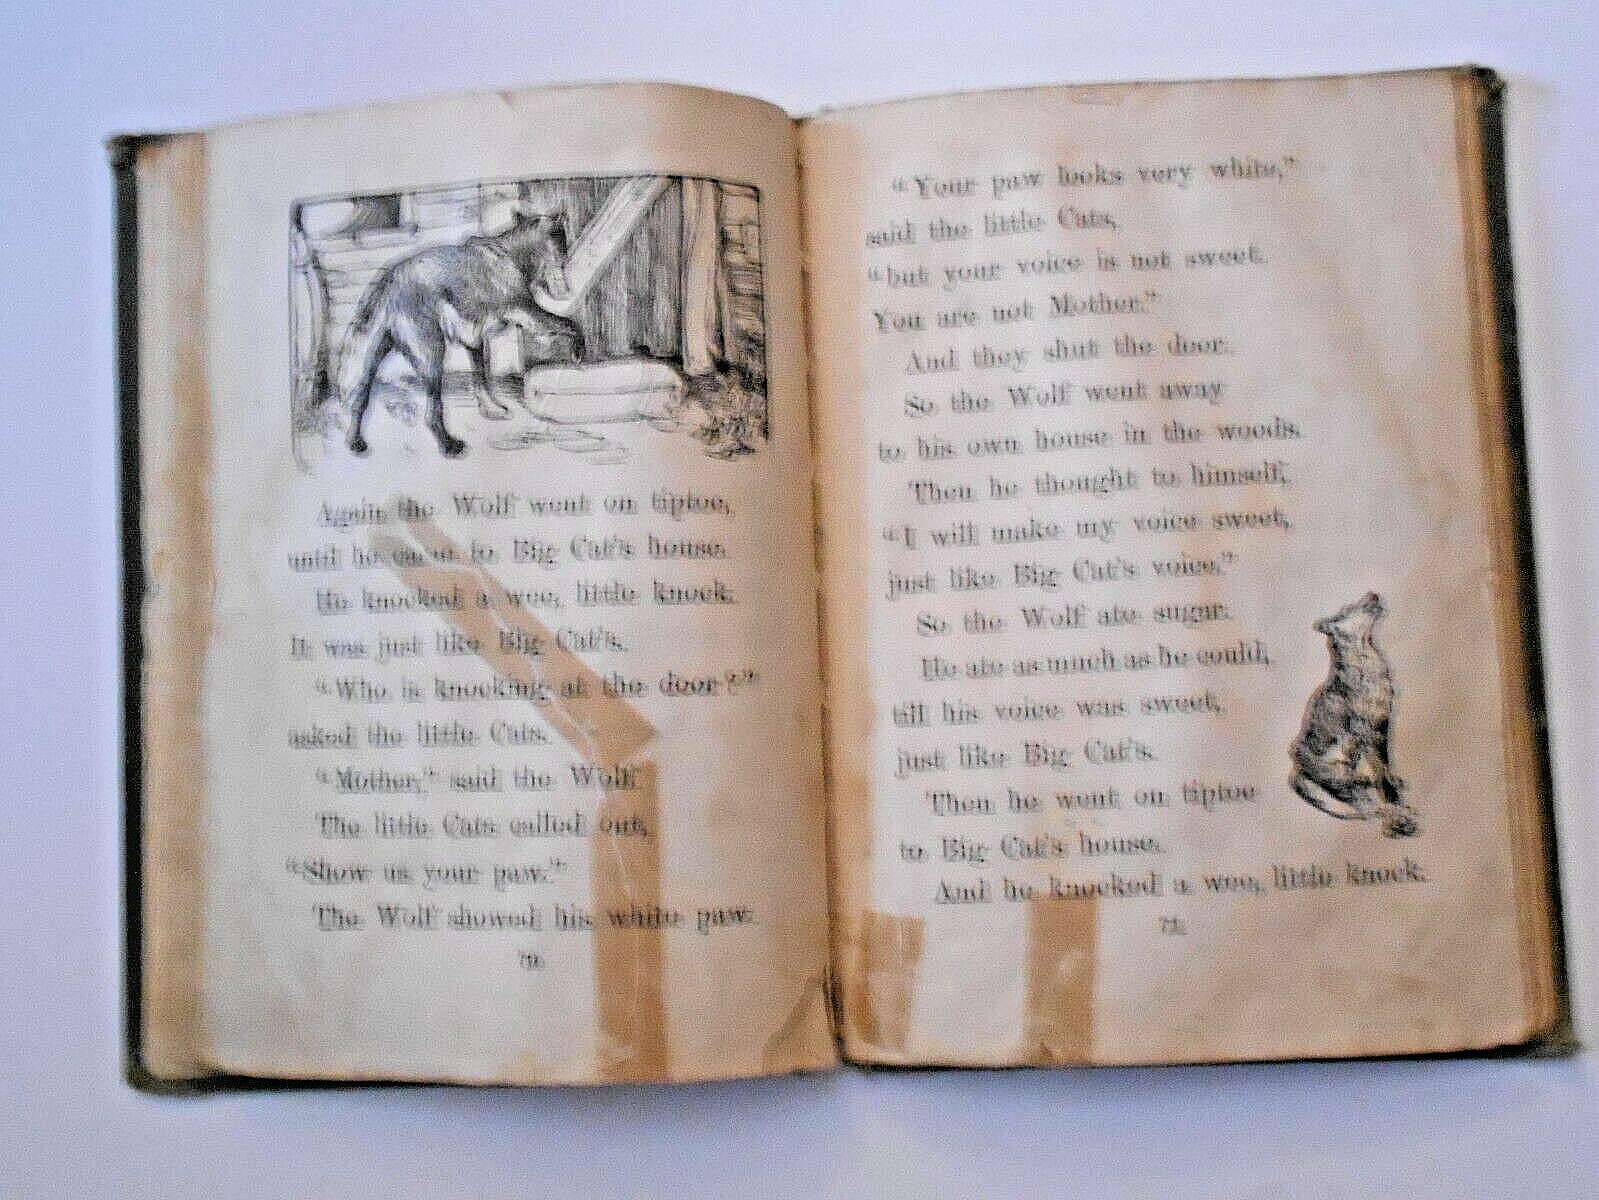 Again the Wolf went on tiptoe,
until he came to Big Cat's house.
He knocked a wee, little knock.
It was just like Big Cat's.
"Who is knocking at the door?"
asked the little Cats.
"Mother," said the Wolf
The little Cats called out,
"Show us your paw."
The Wolf showed his white paw.
70
"Your paw looks very white,"
said the little Cats,
"but your voice is not sweet.
You are not Mother."
And they shut the door.
So the Wolf went away
to his own house in the woods.
Then he thought to himself,
"I will make my voice sweet,
just like Big Cat's voice."
So the Wolf ate sugar.
He ate as much as he could,
till his voice was sweet,
just like Big Cat's.
Then he went on tiptoe
to Big Cat's house.
And he knocked a wee, little knock.
71